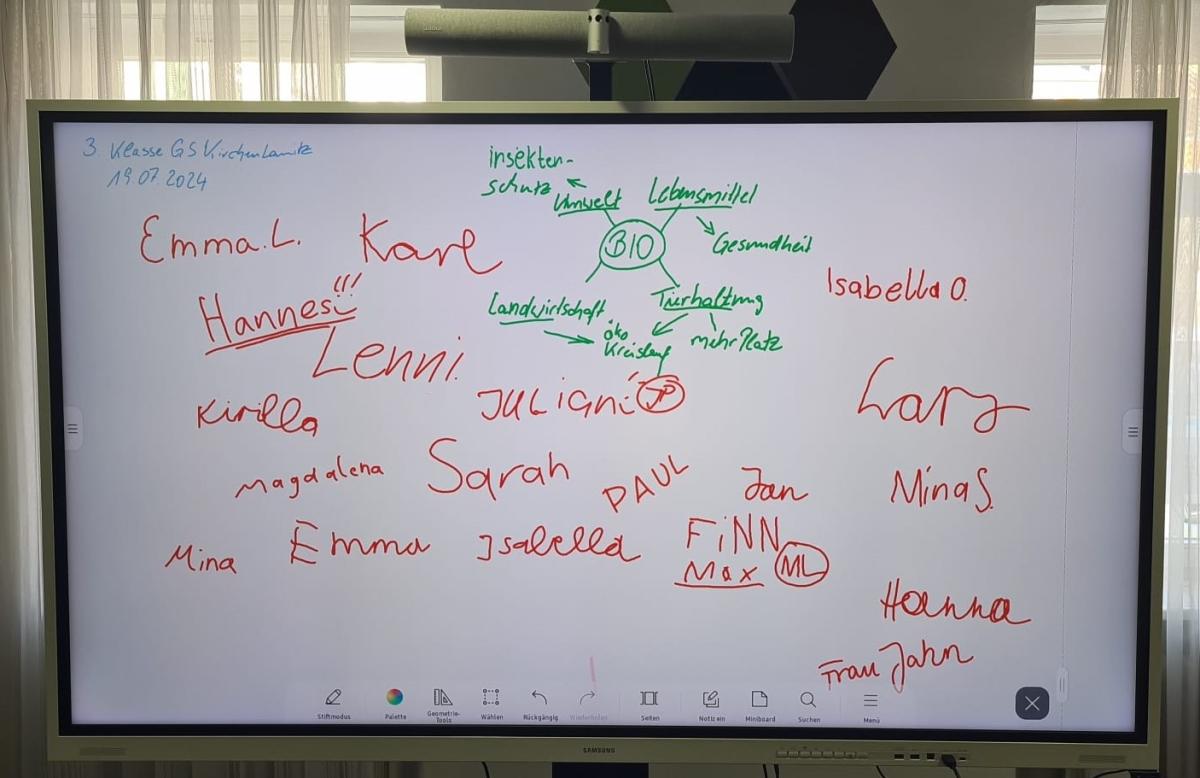 3. Klasse GS Kirchenlamitz
19.07.2024
insekten-
schutz
Umwelt
Lebensmittel
BIO
Gesundheit
Landwirtschaft
Tierhaltung
öko
Kreislauf
mehr Platz
Emma.L.
Karl
Hannes!!!
Isabella O.
Lenni.
Kirilla
JULIAN
JP
Lars
Magdalena
Sarah
PAUL
Jan
Mina S.
Mina
Emma
Isabella
FiNN
Max
ML
Hanna
Frau Jahn
Stiftmodus
Palette
Geometrie-
Tools
Wählen
Rückgängig
Wiederholen
Seiten
Notiz ein
Miniboard
Suchen
Menü
SAMSUNG